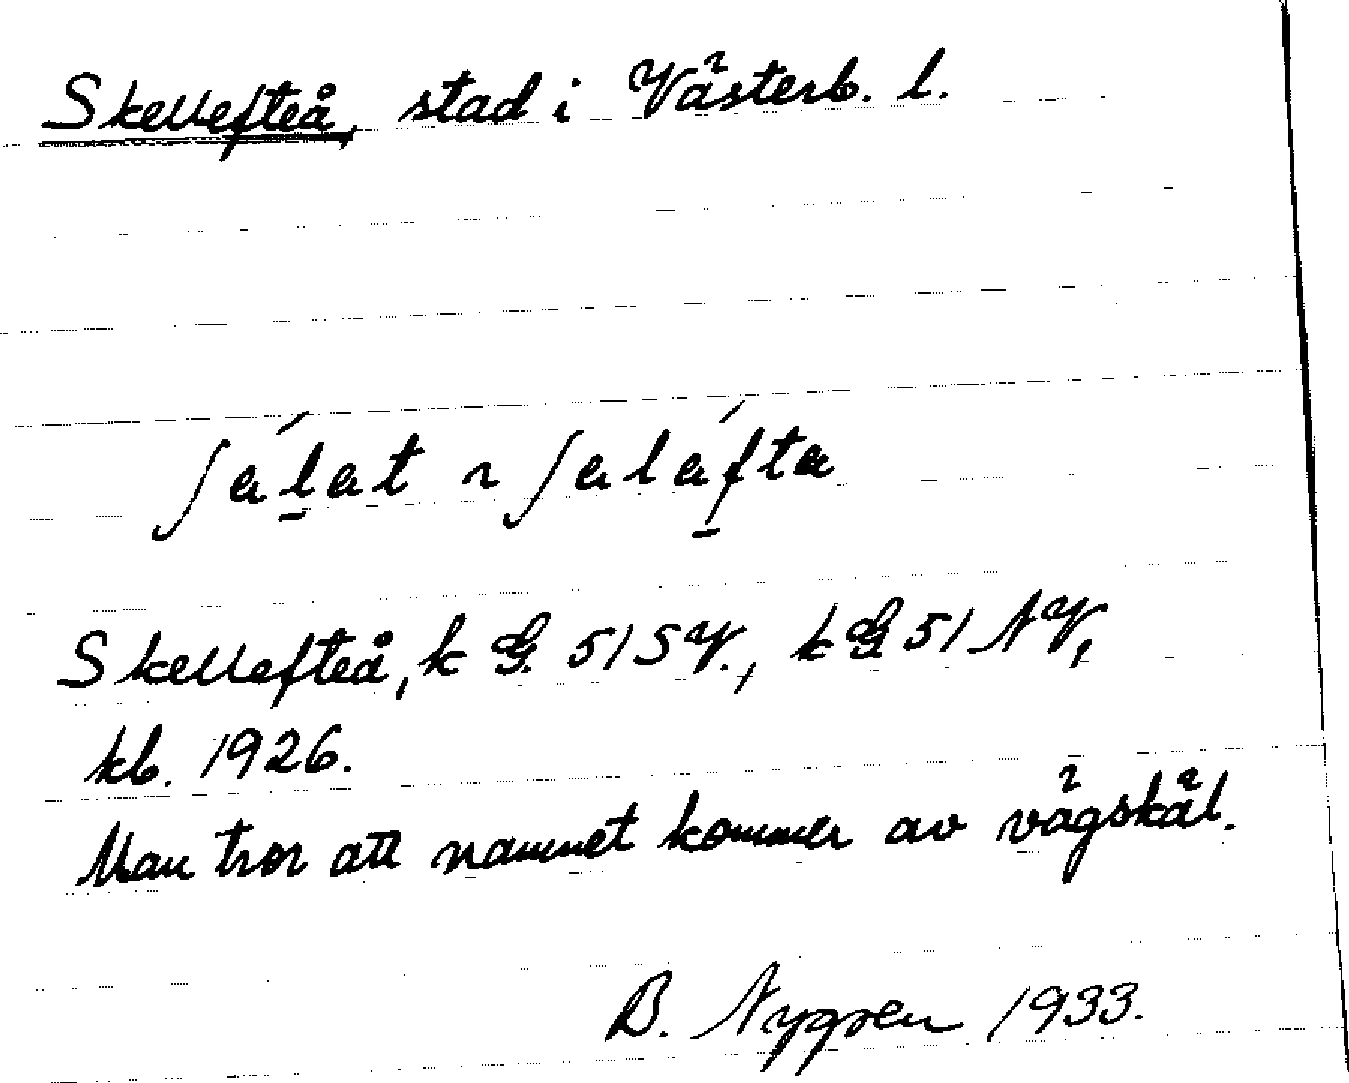 Skellefteå, stad i Västerb. l.
ʃálat ~ ʃaláfta
Skellefteå, k G. 51 SV., k G 51 NV,
kb. 1926.
Man tror att namnet kommer av vågskål.
B. Nygren 1933.